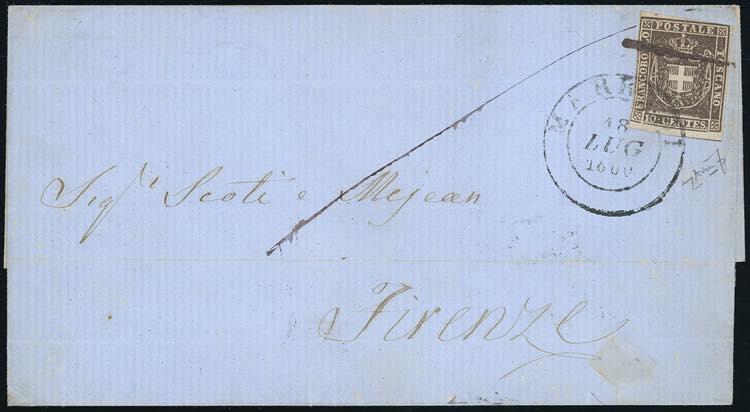 FRANCOBOLLO
POSTALE
TOSCANO
10 CENTES
18
LUG
1860
Sig.ri Scoti e Mejean
Firenze